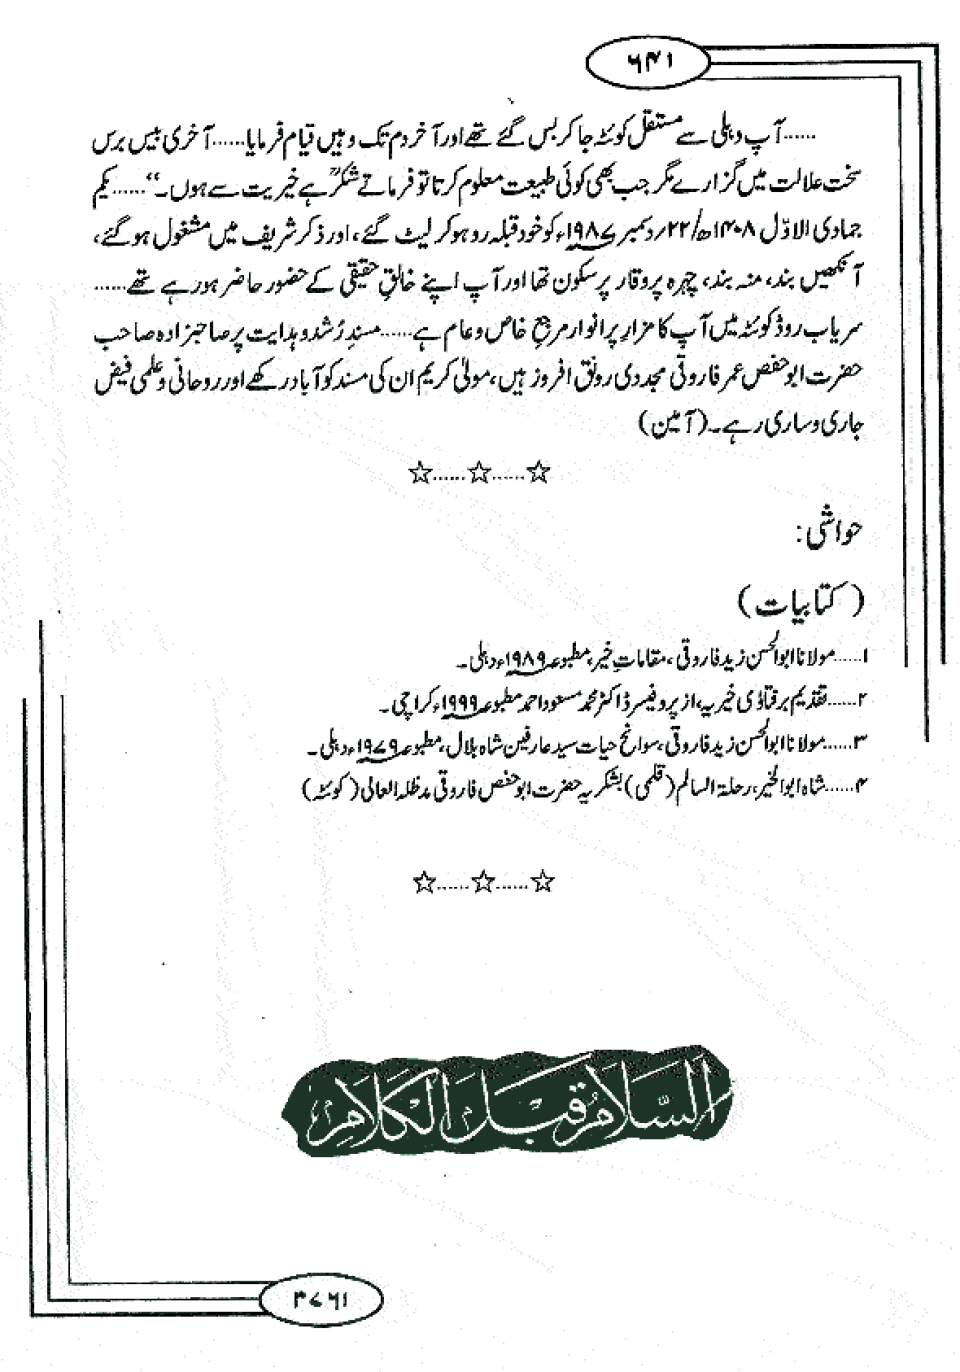 ۶۴۱
......آپ دہلی سے مستقل کوئٹہ جا کر بس گئے تھے اور آخر دم تک وہیں قیام فرمایا......آخری بیس برس
سخت علالت میں گزارے مگر جب بھی کوئی طبیعت معلوم کرتا تو فرماتے شکر ہے خیریت سے ہوں۔‘‘......یکم
جمادی الاوّل ۱۴۰۸ھ/۲۲؍دسمبر ۱۹۸۷ء کو خود قبلہ رو ہو کر لیٹ گئے، اور ذکر شریف میں مشغول ہو گئے،
آنکھیں بند، منہ بند، چہرہ پروقار پر سکون تھا اور آپ اپنے خالقِ حقیقی کے حضور حاضر ہو رہے تھے......
سریاب روڈ کوئٹہ میں آپ کا مزارِ پر انوار مرجع خاص و عام ہے......مسندِ رُشد و ہدایت پر صاحبزادہ صاحب
حضرت ابو حفص عمر فاروقی مجددی رونق افروز ہیں، مولیٰ کریم ان کی مسند کو آباد رکھے اور روحانی و علمی فیض
جاری و ساری رہے۔ (آمین)
☆......☆......☆
حواشی:
(کتابیات)
۱......مولانا ابوالحسن زید فاروقی، مقاماتِ خیر، مطبوعہ ۱۹۸۹ء دہلی۔
۲......تقدیم بر فتاوٰی خیریہ، از پروفیسر ڈاکٹر محمد مسعود احمد مطبوعہ ۱۹۹۹ء کراچی۔
۳......مولانا ابوالحسن زید فاروقی، سوانح حیات سید عارفین شاہ بلال، مطبوعہ ۱۹۷۹ء دہلی۔
۴......شاہ ابوالخیر، رحلۃ السالم (قلمی) بشکریہ حضرت ابو حفص فاروقی مدظلہ العالی (کوئٹہ)
☆......☆......☆
السَّلَامُ قَبْلَ الْكَلَامِ